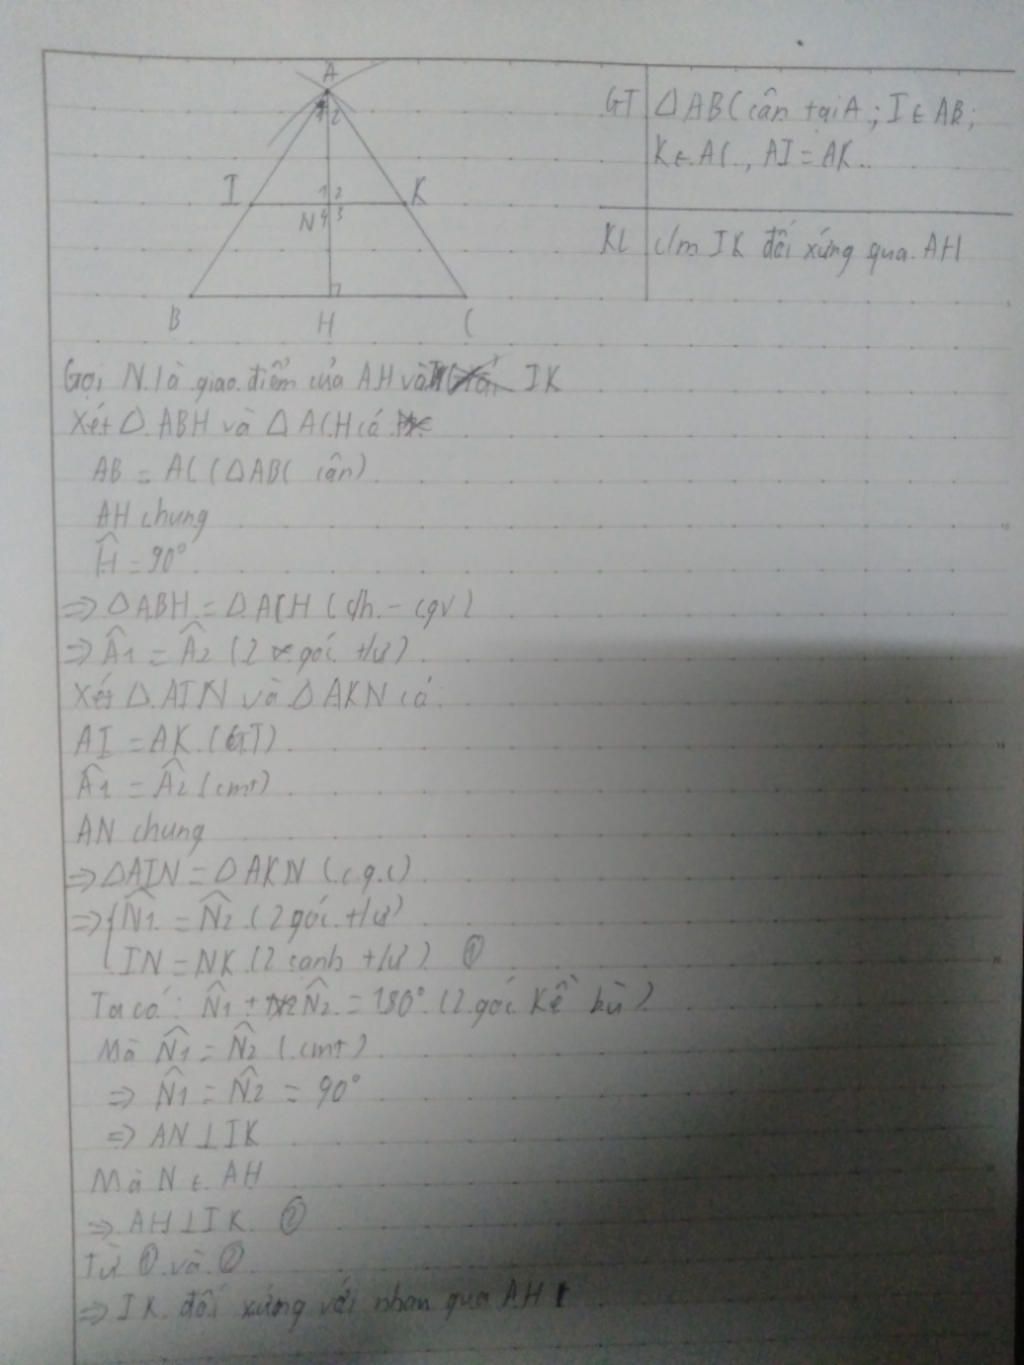 A
1 2
I
1 2
K
N 4 3
B
H
C
GT △ABC cân tại A; I ∈ AB;
K ∈ AC, AI = AK
KL c/m IK đối xứng qua AH
Gọi N là giao điểm của AH và IK
Xét △ABH và △ACH có
AB = AC (△ABC cân)
AH chung
Ĥ = 90°
⇒ △ABH = △ACH (ch - cgv)
⇒ Â1 = Â2 (2 góc t/ư)
Xét △AIN và △AKN có
AI = AK (GT)
Â1 = Â2 (cmt)
AN chung
⇒ △AIN = △AKN (c.g.c)
⇒ { N̂1 = N̂2 (2 góc t/ư)
IN = NK (2 cạnh t/ư) ①
Ta có: N̂1 + N̂2 = 180° (2 góc kề bù)
Mà N̂1 = N̂2 (cmt)
⇒ N̂1 = N̂2 = 90°
⇒ AN ⊥ IK
Mà N ∈ AH
⇒ AH ⊥ IK ②
Từ ① và ②
⇒ IK đối xứng với nhau qua AH